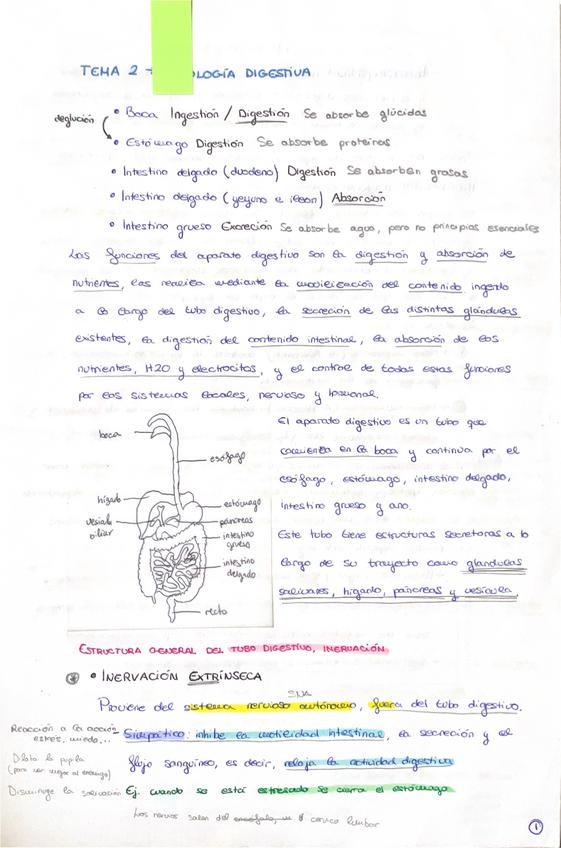 TEMA 2 OLOGÍA DIGESTIVA
deglución
• Boca Ingestión / Digestión Se absorbe glúcidos
• Estómago Digestión Se absorbe proteínas
• Intestino delgado (duodeno) Digestión Se absorben grasas
• Intestino delgado (yeyuno e íleon) Absorción
• Intestino grueso Excreción Se absorbe agua, pero no principios esenciales
Las funciones del aparato digestivo son la digestión y absorción de
nutrientes, las realiza mediante la movilización del contenido ingerido
a lo largo del tubo digestivo, la secreción de las distintas glándulas
existentes, la digestión del contenido intestinal, la absorción de los
nutrientes, H2O y electrocitos, y el control de todas estas funciones
por los sistemas locales, nervioso y hormonal.
boca
esófago
hígado
estómago
vesícula
biliar
páncreas
intestino
grueso
intestino
delgado
recto
El aparato digestivo es un tubo que
comienza en la boca y continua por el
esófago, estómago, intestino delgado,
intestino grueso y ano.
Este tubo tiene estructuras secretoras a lo
largo de su trayecto como glándulas
salivares, hígado, páncreas y vesícula.
ESTRUCTURA GENERAL DEL TUBO DIGESTIVO, INERVACIÓN
• INERVACIÓN EXTRÍNSECA
SNA
Proviene del sistema nervioso autónomo, fuera del tubo digestivo.
Reacción a la acción
estrés, miedo...
- Simpático: inhibe la motilidad intestinal, la secreción y el
Dilata la pupila
(para ver mejor al enemigo)
flujo sanguíneo, es decir, relaja la actividad digestiva
Disminuye la salivación
Ej. cuando se está estresado se cierra el estómago
Los nervios salen del
lumbar
1